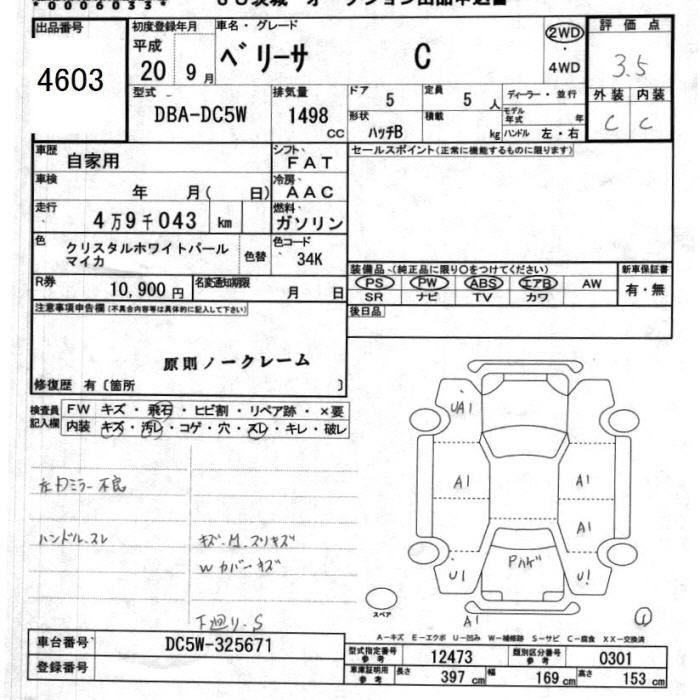 *0006033*
出品番号
4603
初度登録年月
平成
20 9月
車名・グレード
ベリーサ C
2WD
・
4WD
評価点
3.5
外装 内装
C C
型式
DBA-DC5W
排気量
1498
CC
ドア
5
定員
5人
ディーラー・並行
モデル年式 年
形状
ハッチB
積載
kg
ハンドル 左・右
車歴
自家用
シフト
FAT
車検
年 月( 日)
冷房
AAC
走行
4万9千043 km
燃料
ガソリン
色
クリスタルホワイトパール
マイカ
色替
色コード
34K
R券
10,900円
名変通知期限
月 日
セールスポイント(正常に機能するものに限ります)
装備品、(純正品に限り○をつけてください)
PS PW ABS エアB AW
SR ナビ TV カワ
新車保証書
有・無
後日品
注意事項申告欄(不具合内容等は具体的に記入して下さい)
原則ノークレーム
修復歴 有〔箇所 〕
検査員
記入欄
FW キズ・飛石・ヒビ割・リペア跡・×要
内装 キズ・汚レ・コゲ・穴・スレ・キレ・破レ
左ドミラー不良
ハンドルスレ
キズ.M.スリキズ
Wカバーキズ
下廻り.S
UA1
A1
A1
A1
U1
U1
Pハゲ
A1
スペア
4
A-キズ E-エクボ U-凹み W-補修跡 S-サビ C-腐食 XX-交換済
車台番号
DC5W-325671
登録番号
型式指定番号
参考
12473
類別区分番号
参考
0301
車庫証明用
参考
長さ 397 cm
幅 169 cm
高さ 153 cm